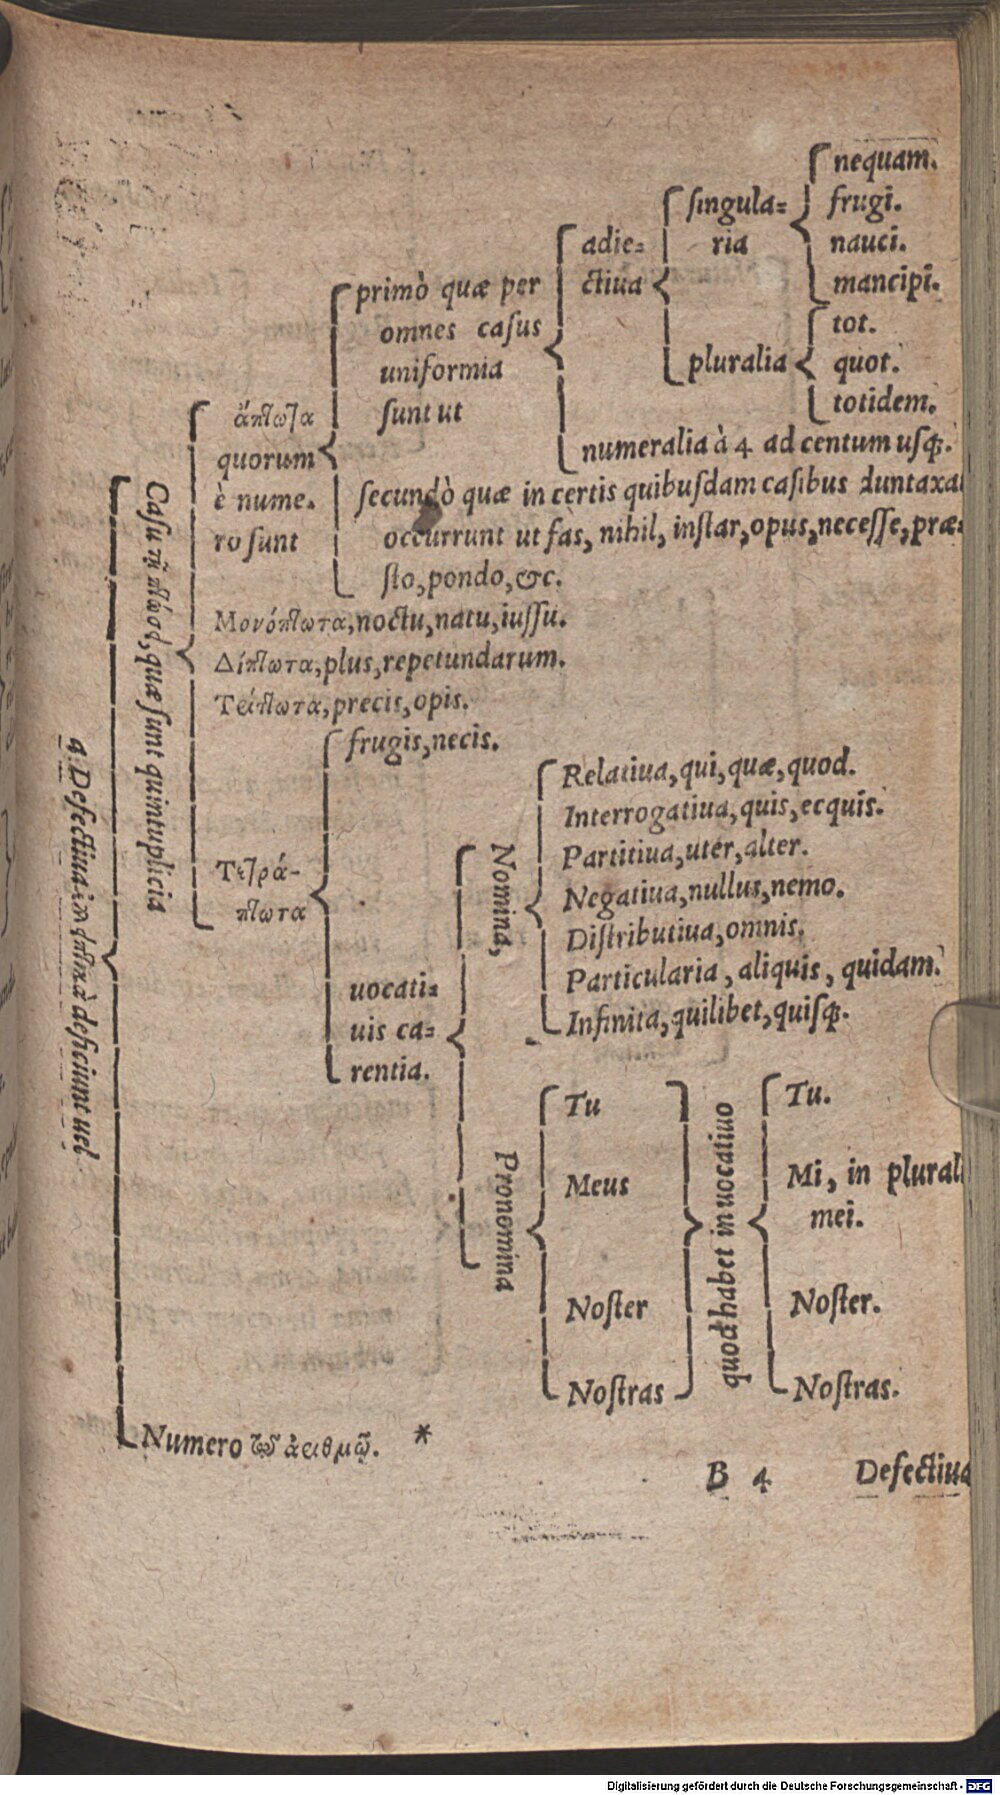 4. Defectiua
deficiunt uel
Casu
quæ sunt quintuplicia
ἄπτωτα
quorum
è nume-
ro sunt
primò quæ per
omnes casus
uniformia
sunt ut
adie-
ctiua
singula-
ria
nequam.
frugi.
nauci.
mancipi.
pluralia
tot.
quot.
totidem.
numeralia à 4 ad centum usq;.
secundò quæ in certis quibusdam casibus duntaxat
occurrunt ut fas, nihil, instar, opus, necesse, præ-
sto, pondo, &c.
Μονόπτωτα, noctu, natu, iussu.
Δίπτωτα, plus, repetundarum.
Τρίπτωτα, precis, opis.
Τετρά-
πτωτα
frugis, necis.
uocati-
uis ca-
rentia.
Nomina,
Relatiua, qui, quæ, quod.
Interrogatiua, quis, ecquis.
Partitiua, uter, alter.
Negatiua, nullus, nemo.
Distributiua, omnis.
Particularia, aliquis, quidam.
Infinita, quilibet, quisq;.
Pronomina
Tu
Meus
Noster
Nostras
quod habet in uocatiuo
Tu.
Mi, in plurali
mei.
Noster.
Nostras.
Numero τῷ ἀριθμῷ. *
B 4 Defectiua
Digitalisierung gefördert durch die Deutsche Forschungsgemeinschaft - DFG